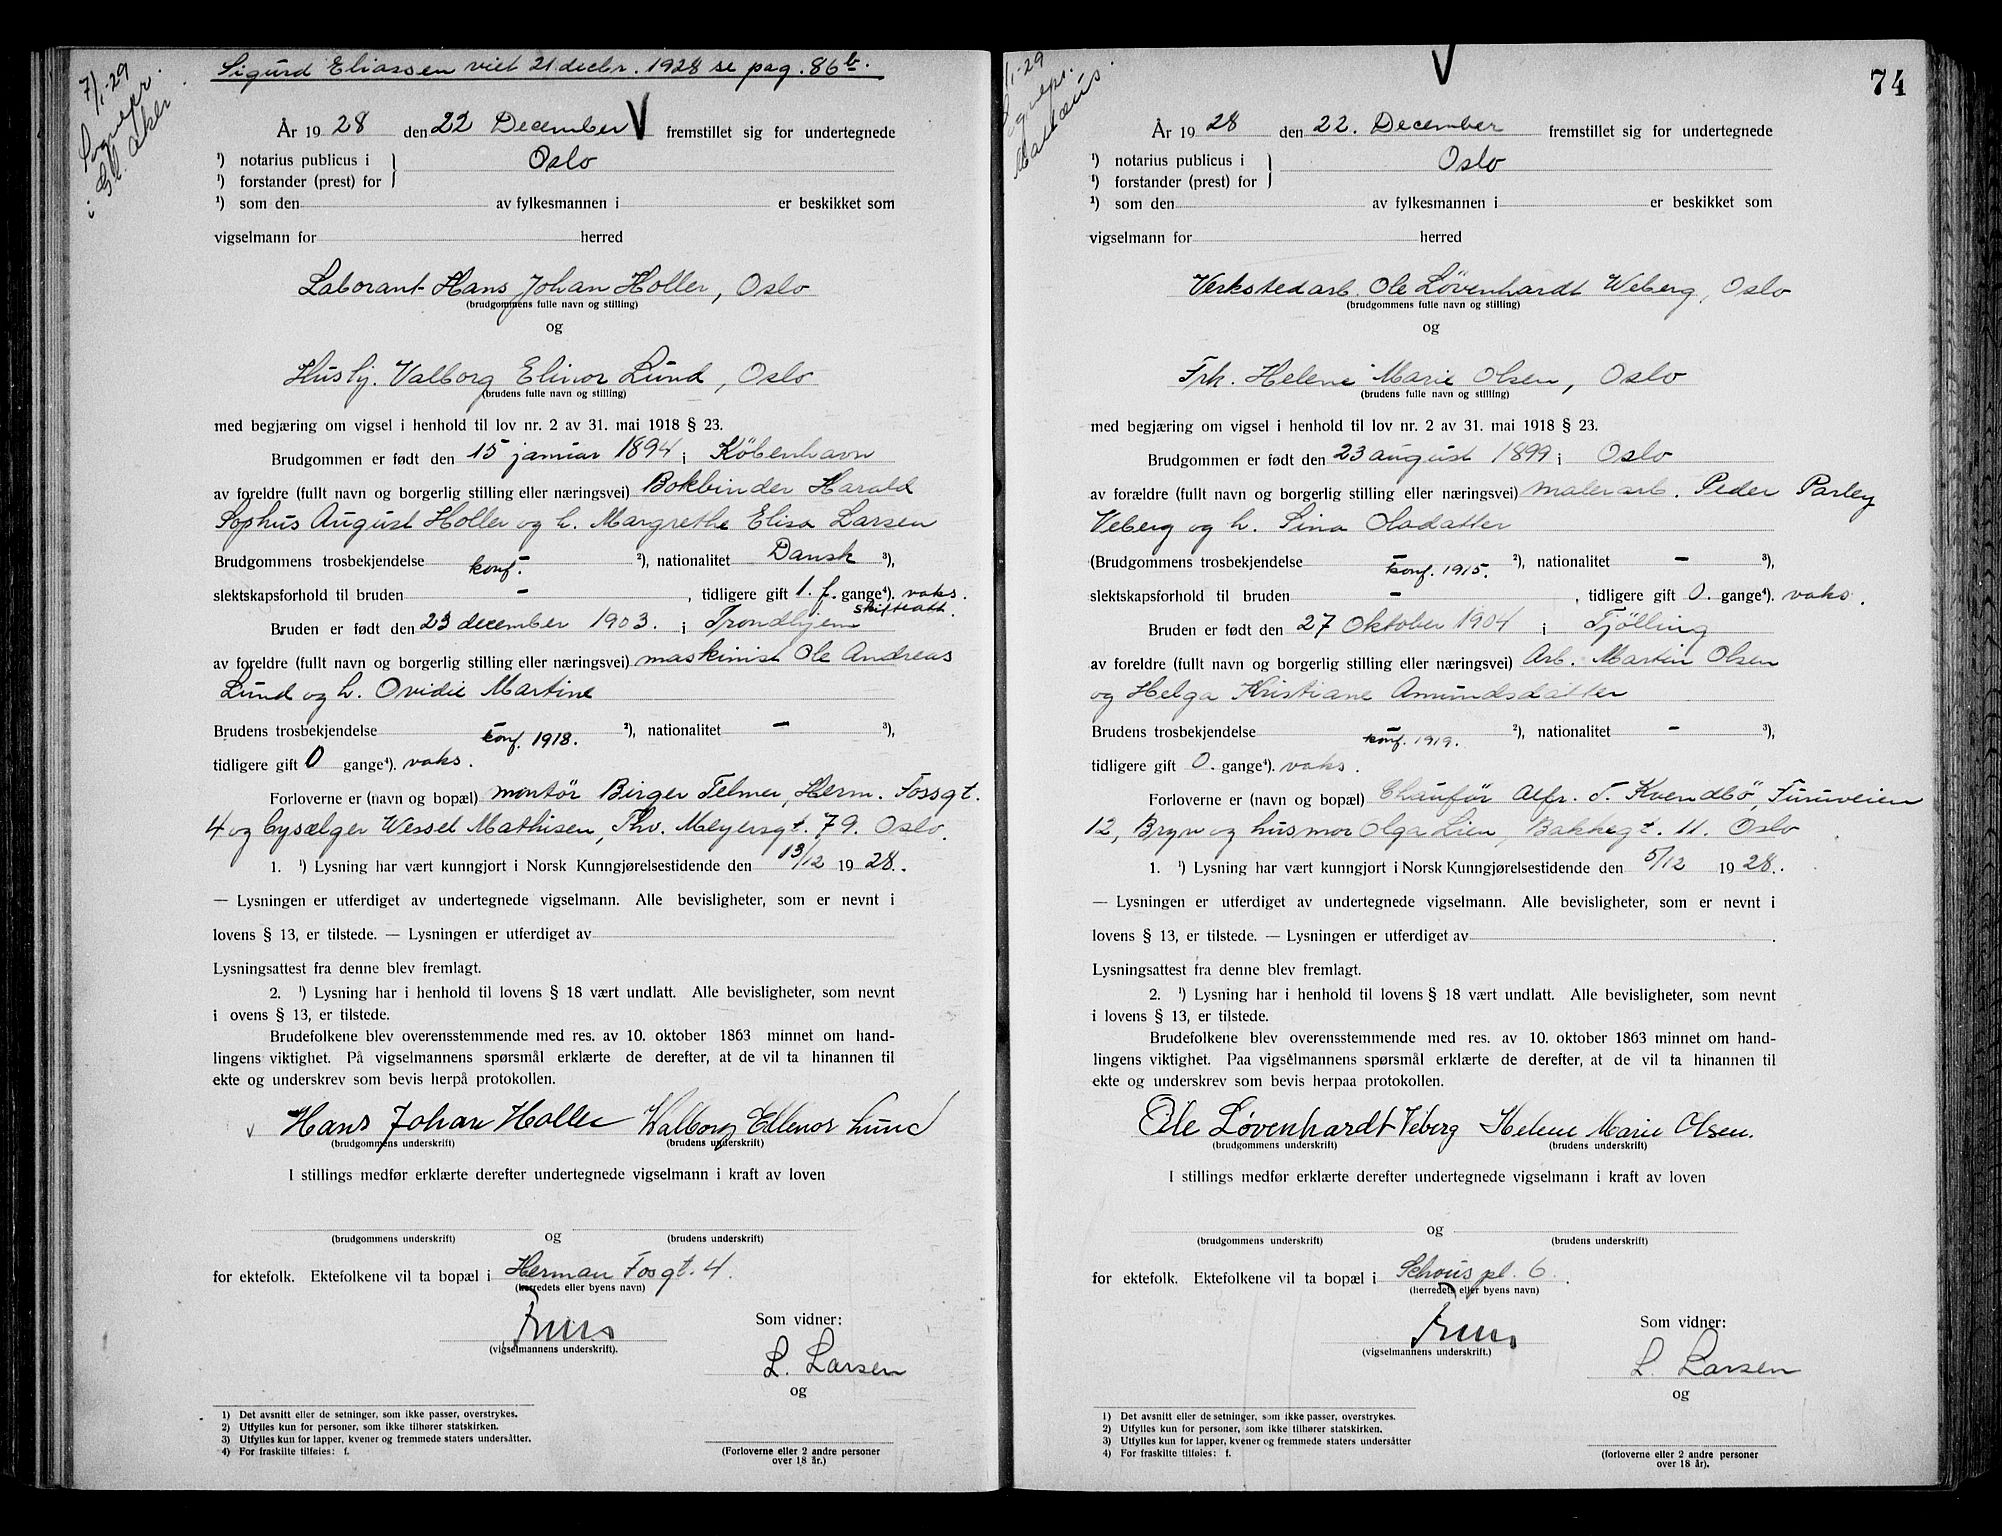 7/1-29
Sognepr.
i Gl. Aker
Sigurd Eliassen viet 21 decbr. 1928 se pag. 86b.
År 1928 den 22 December V fremstillet sig for undertegnede
¹) notarius publicus i } Oslo
¹) forstander (prest) for
¹) som den av fylkesmannen i er beskikket som
vigselmann for herred
Laborant Hans Johan Holler, Oslo
(brudgommens fulle navn og stilling)
og
Husbj. Valborg Elinor Lund, Oslo
(brudens fulle navn og stilling)
med begjæring om vigsel i henhold til lov nr. 2 av 31. mai 1918 § 23.
Brudgommen er født den 15 januar 1894 i København
av foreldre (fullt navn og borgerlig stilling eller næringsvei) Bokbinder Harald
Sophus August Holler og h. Margrethe Elisa Larsen
Brudgommens trosbekjendelse – ²), nationalitet Dansk ³),
konf.
slektskapsforhold til bruden – , tidligere gift 1. f. gange⁴). voks.
skifteatt.
Bruden er født den 23 december 1903. i Trondhjem
av foreldre (fullt navn og borgerlig stilling eller næringsvei) maskinist Ole Andreas
Lund og h. Ovidie Martine
Brudens trosbekjendelse – ²), nationalitet – ³),
konf. 1918.
tidligere gift 0 gange⁴). voks.
Forloverne er (navn og bopæl) montør Birger Telmer, Herm. Fossgt.
4 og bysælger Wessel Mathisen, Thv. Meyersgt. 79. Oslo.
1. ¹) Lysning har vært kunngjort i Norsk Kunngjørelsestidende den 13/12 1928.
— Lysningen er utferdiget av undertegnede vigselmann. Alle bevisligheter, som er nevnt i
lovens § 13, er tilstede. — Lysningen er utferdiget av
Lysningsattest fra denne blev fremlagt.
2. ¹) Lysning har i henhold til lovens § 18 vært undlatt. Alle bevisligheter, som nevnt
i ovens § 13, er tilstede.
Brudefolkene blev overensstemmende med res. av 10. oktober 1863 minnet om hand-
lingens viktighet. På vigselmannens spørsmål erklærte de derefter, at de vil ta hinannen til
ekte og underskrev som bevis herpå protokollen.
v Hans Johan Holler Walborg Ellenor Lund
(brudgommens underskrift) (brudens underskrift)
I stillings medfør erklærte derefter undertegnede vigselmann i kraft av loven
og
(brudgommens underskrift) (brudens underskrift)
for ektefolk. Ektefolkene vil ta bopæl i Herman Fosgt. 4.
(herredets eller byens navn)
Som vidner:
(vigselmannens underskrift).
L. Larsen
og
1) Det avsnitt eller de setninger, som ikke passer, overstrykes.
2) Utfylles kun for personer, som ikke tilhører statskirken.
3) Utfylles kun for lapper, kvener og fremmede staters undersåtter.
4) For fraskilte tilføies: f.
(Forloverne eller 2 andre personer
over 18 år.)
/1-29
Sognepr.
Matthæus.
V
74
År 1928 den 22. December fremstillet sig for undertegnede
¹) notarius publicus i } Oslo
¹) forstander (prest) for
¹) som den av fylkesmannen i er beskikket som
vigselmann for herred
Verkstedarb. Ole Løvenhardt Weberg, Oslo
(brudgommens fulle navn og stilling)
og
Frk. Helene Marie Olsen, Oslo
(brudens fulle navn og stilling)
med begjæring om vigsel i henhold til lov nr. 2 av 31. mai 1918 § 23.
Brudgommen er født den 23 august 1899 i Oslo
av forældre (fullt navn og borgerlig stilling eller næringsvei) malerarb. Peder Parley
Veberg og h. Sina Oladatter
(Brudgommens trosbekjendelse – ²), nationalitet – ³),
konf. 1915.
slektskapsforhold til bruden – , tidligere gift 0. gange⁴). voks.
Bruden er født den 27 Oktober 1904 i Tjølling
av foreldre (fullt navn og borgerlig stilling eller næringsvei) Arb. Martin Olsen
og Helga Kristiane Amundsdatter
Brudens trosbekjendelse – ²), nationalitet – ³),
konf. 1919.
tidligere gift 0. gange⁴). voks.
Forloverne er (navn og bopæl) Chaufør Alfr. T. Kvendbø, Furuveien
12, Bryn og husmor Olga Lien, Bakkegt. 11. Oslo
1. ¹) Lysning har vært kunngjort i Norsk Kunngjørelsestidende den 5/12 1928.
— Lysningen er utferdiget av undertegnede vigselmann. Alle bevisligheter, som er nevnt i
lovens § 13, er tilstede. — Lysningen er utferdiget av .
Lysningsattest fra denne blev fremlagt.
2. ¹) Lysning har i henhold til lovens § 18 vært undlatt. Alle bevisligheter, som nevnt
i lovens § 13, er tilstede.
Brudefolkene blev overensstemmende med res. av 10. oktober 1863 minnet om hand-
lingens viktighet. Paa vigselmannens spørsmål erklærte de derefter, at de vil ta hinannen til
ekte og underskrev som bevis herpaa protokollen.
Ole Løvenhardt Veberg Helene Marie Olsen.
(brudgommens underskrift) (brudens underskrift)
I stillings medfør erklærte derefter undertegnede vigselmann i kraft av loven
og
(brudgommens underskrift) (brudens underskrift)
for ektefolk. Ektefolkene vil ta bopæl i Schous pl. 6.
(herredets eller byens navn)
Som vidner:
(vigselmannens underskrift.)
L. Larsen
og
1) Det avsnitt eller de setninger, som ikke passer, overstrykes.
2) Utfylles kun for personer, som ikke tilhører statskirken.
3) Utfylles kun for lapper, kvener og fremmede staters undersåtter
4) For fraskilte tilføies: f.
(forloverne eller 2 andre personer
over 18 år).